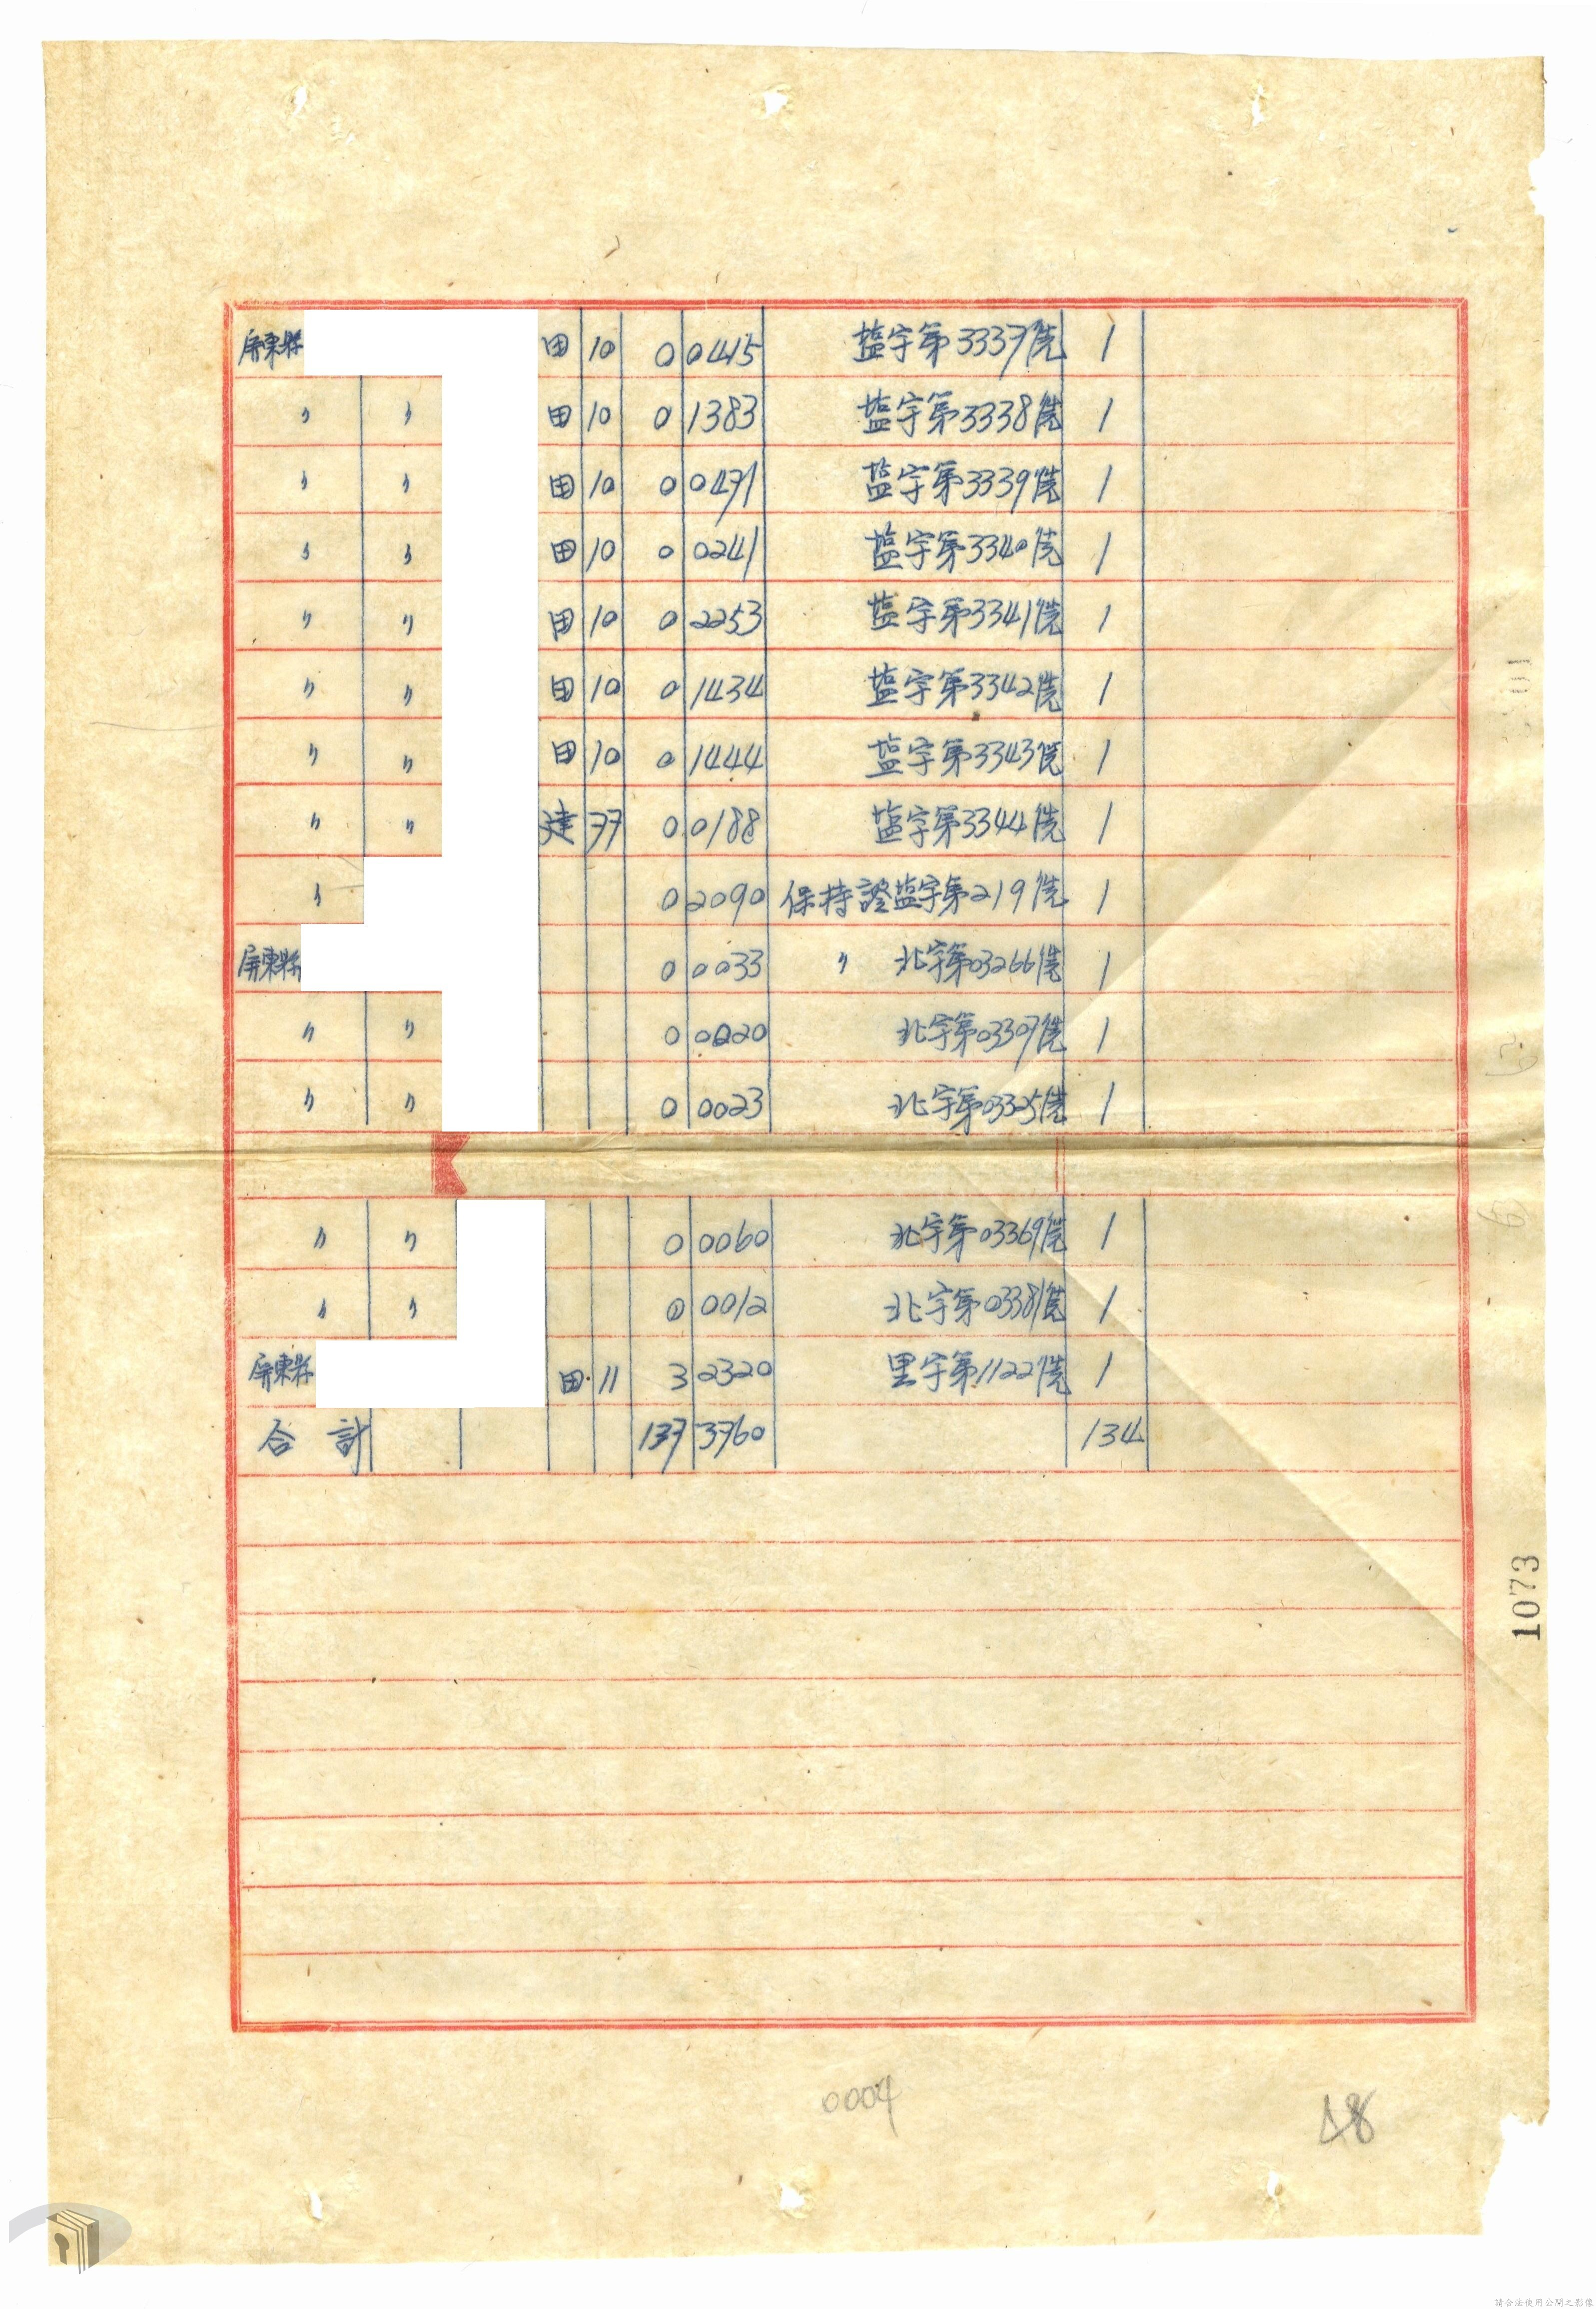 屏東縣 田 10 0 0415 塩字第3337號 1
〃 〃 田 10 0 1383 塩字第3338號 1
〃 〃 田 10 0 0471 塩字第3339號 1
〃 〃 田 10 0 0241 塩字第3340號 1
〃 〃 田 10 0 2253 塩字第3341號 1
〃 〃 田 10 0 1434 塩字第3342號 1
〃 〃 田 10 0 1444 塩字第3343號 1
〃 〃 建 77 0 0188 塩字第3344號 1
〃 0 2090 保持證塩字第219號 1
屏東縣 0 0033 〃 北字第03266號 1
〃 〃 0 0020 北字第03307號 1
〃 〃 0 0023 北字第03325號 1
〃 〃 0 0060 北字第03369號 1
〃 〃 0 0012 北字第03381號 1
屏東縣 田 11 3 2320 里字第1122號 1
合計 137 3760 134
1073
0004
48
請合法使用公開之影像